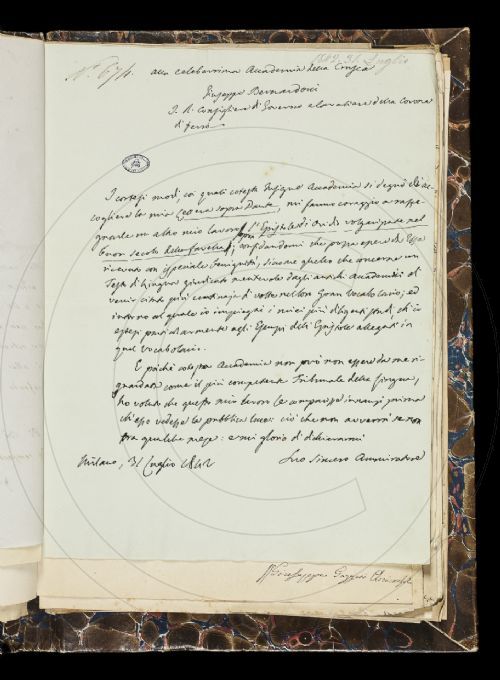 N.° 674.
31 Luglio
alla celebarrima Accademia della Crusca
Giuseppe Bernardoni
I. R. Consigliere di Governo e Cavaliere della Corona
di ferro
I cortesi modi, coi quali cotesta Insigne Accademia si degnò di ac-
cogliere la mia sopra Dante, mi fanno coraggio a
un altro mio lavoro sopra l'Epistole di Ovidio volgarizzate nel
buon secolo della favella, confidandomi che possa essere da Essa
ricevuto con speciale benignità, siccome quello che concerne un
Testo di lingua giudicato meritevole dagli antichi Accademici di
venir citato più centinaja di volte nel loro Gran Vocabolario; ed
intorno al quale io impiegai i miei più diligenti studj, ch'io
estesi parzialmente agli Esempi delle Epistole allegati in
quel Vocabolario.
E poichè cotesta Accademia non può non essere da me ri-
guardata come il più competente Tribunale della lingua,
ho voluto che questo mio lavoro le comparisse innanzi prima
ch'esso vedesse la pubblica luce: ciò che non avverrà se non
fra qualche mese: e mi glorio di dichiararmi
Milano, 31 Luglio 1842
Suo Sincero Ammiratore